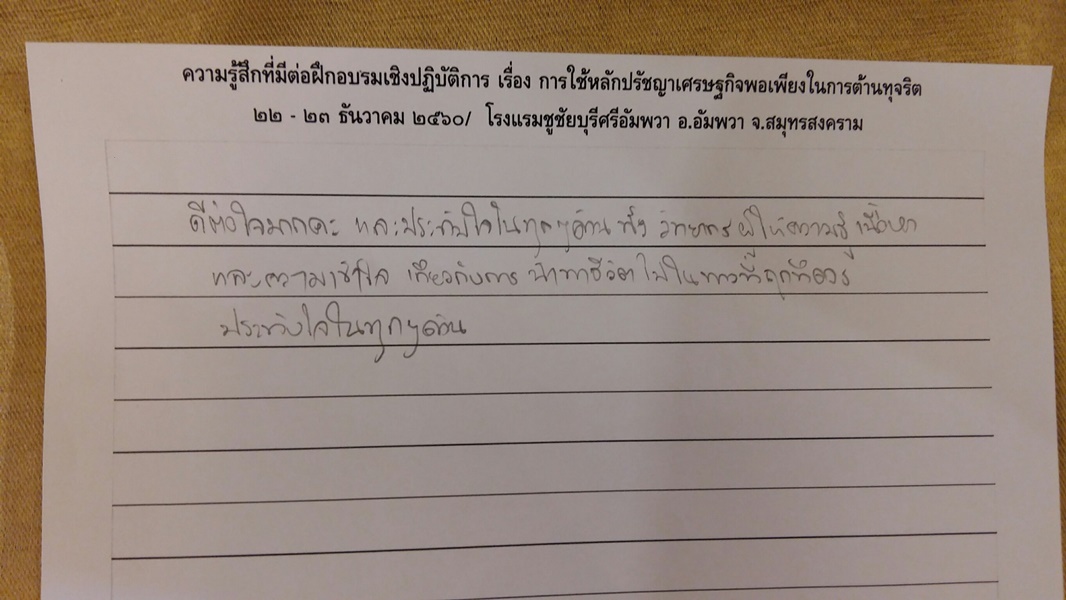 ความรู้สึกที่มีต่อฝึกอบรมเชิงปฏิบัติการ เรื่อง การใช้หลักปรัชญาเศรษฐกิจพอเพียงในการต้านทุจริต
๒๒ - ๒๓ ธันวาคม ๒๕๖๐/ โรงแรมชูชัยบุรีศรีอัมพวา อ.อัมพวา จ.สมุทรสงคราม
ดีต่อใจมากคะ และประทับใจในทุกๆด้าน ทั้ง วิทยากร ผู้ให้ความรู้ เนื้อหา
และความเข้าใจ เกี่ยวกับการ นำพาชีวิต ไปในทางที่ถูกที่ควร
ประทับใจในทุกๆด้าน